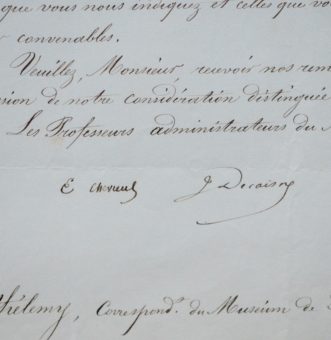 que vous nous indiquez et celles que vo
convenables.
Veuillez, Monsieur, recevoir nos rem
sion de notre considération distinguée
Les Professeurs administrateurs du M
E Chevreul J Decaisne
hélemy, Correspondt. du Muséum de